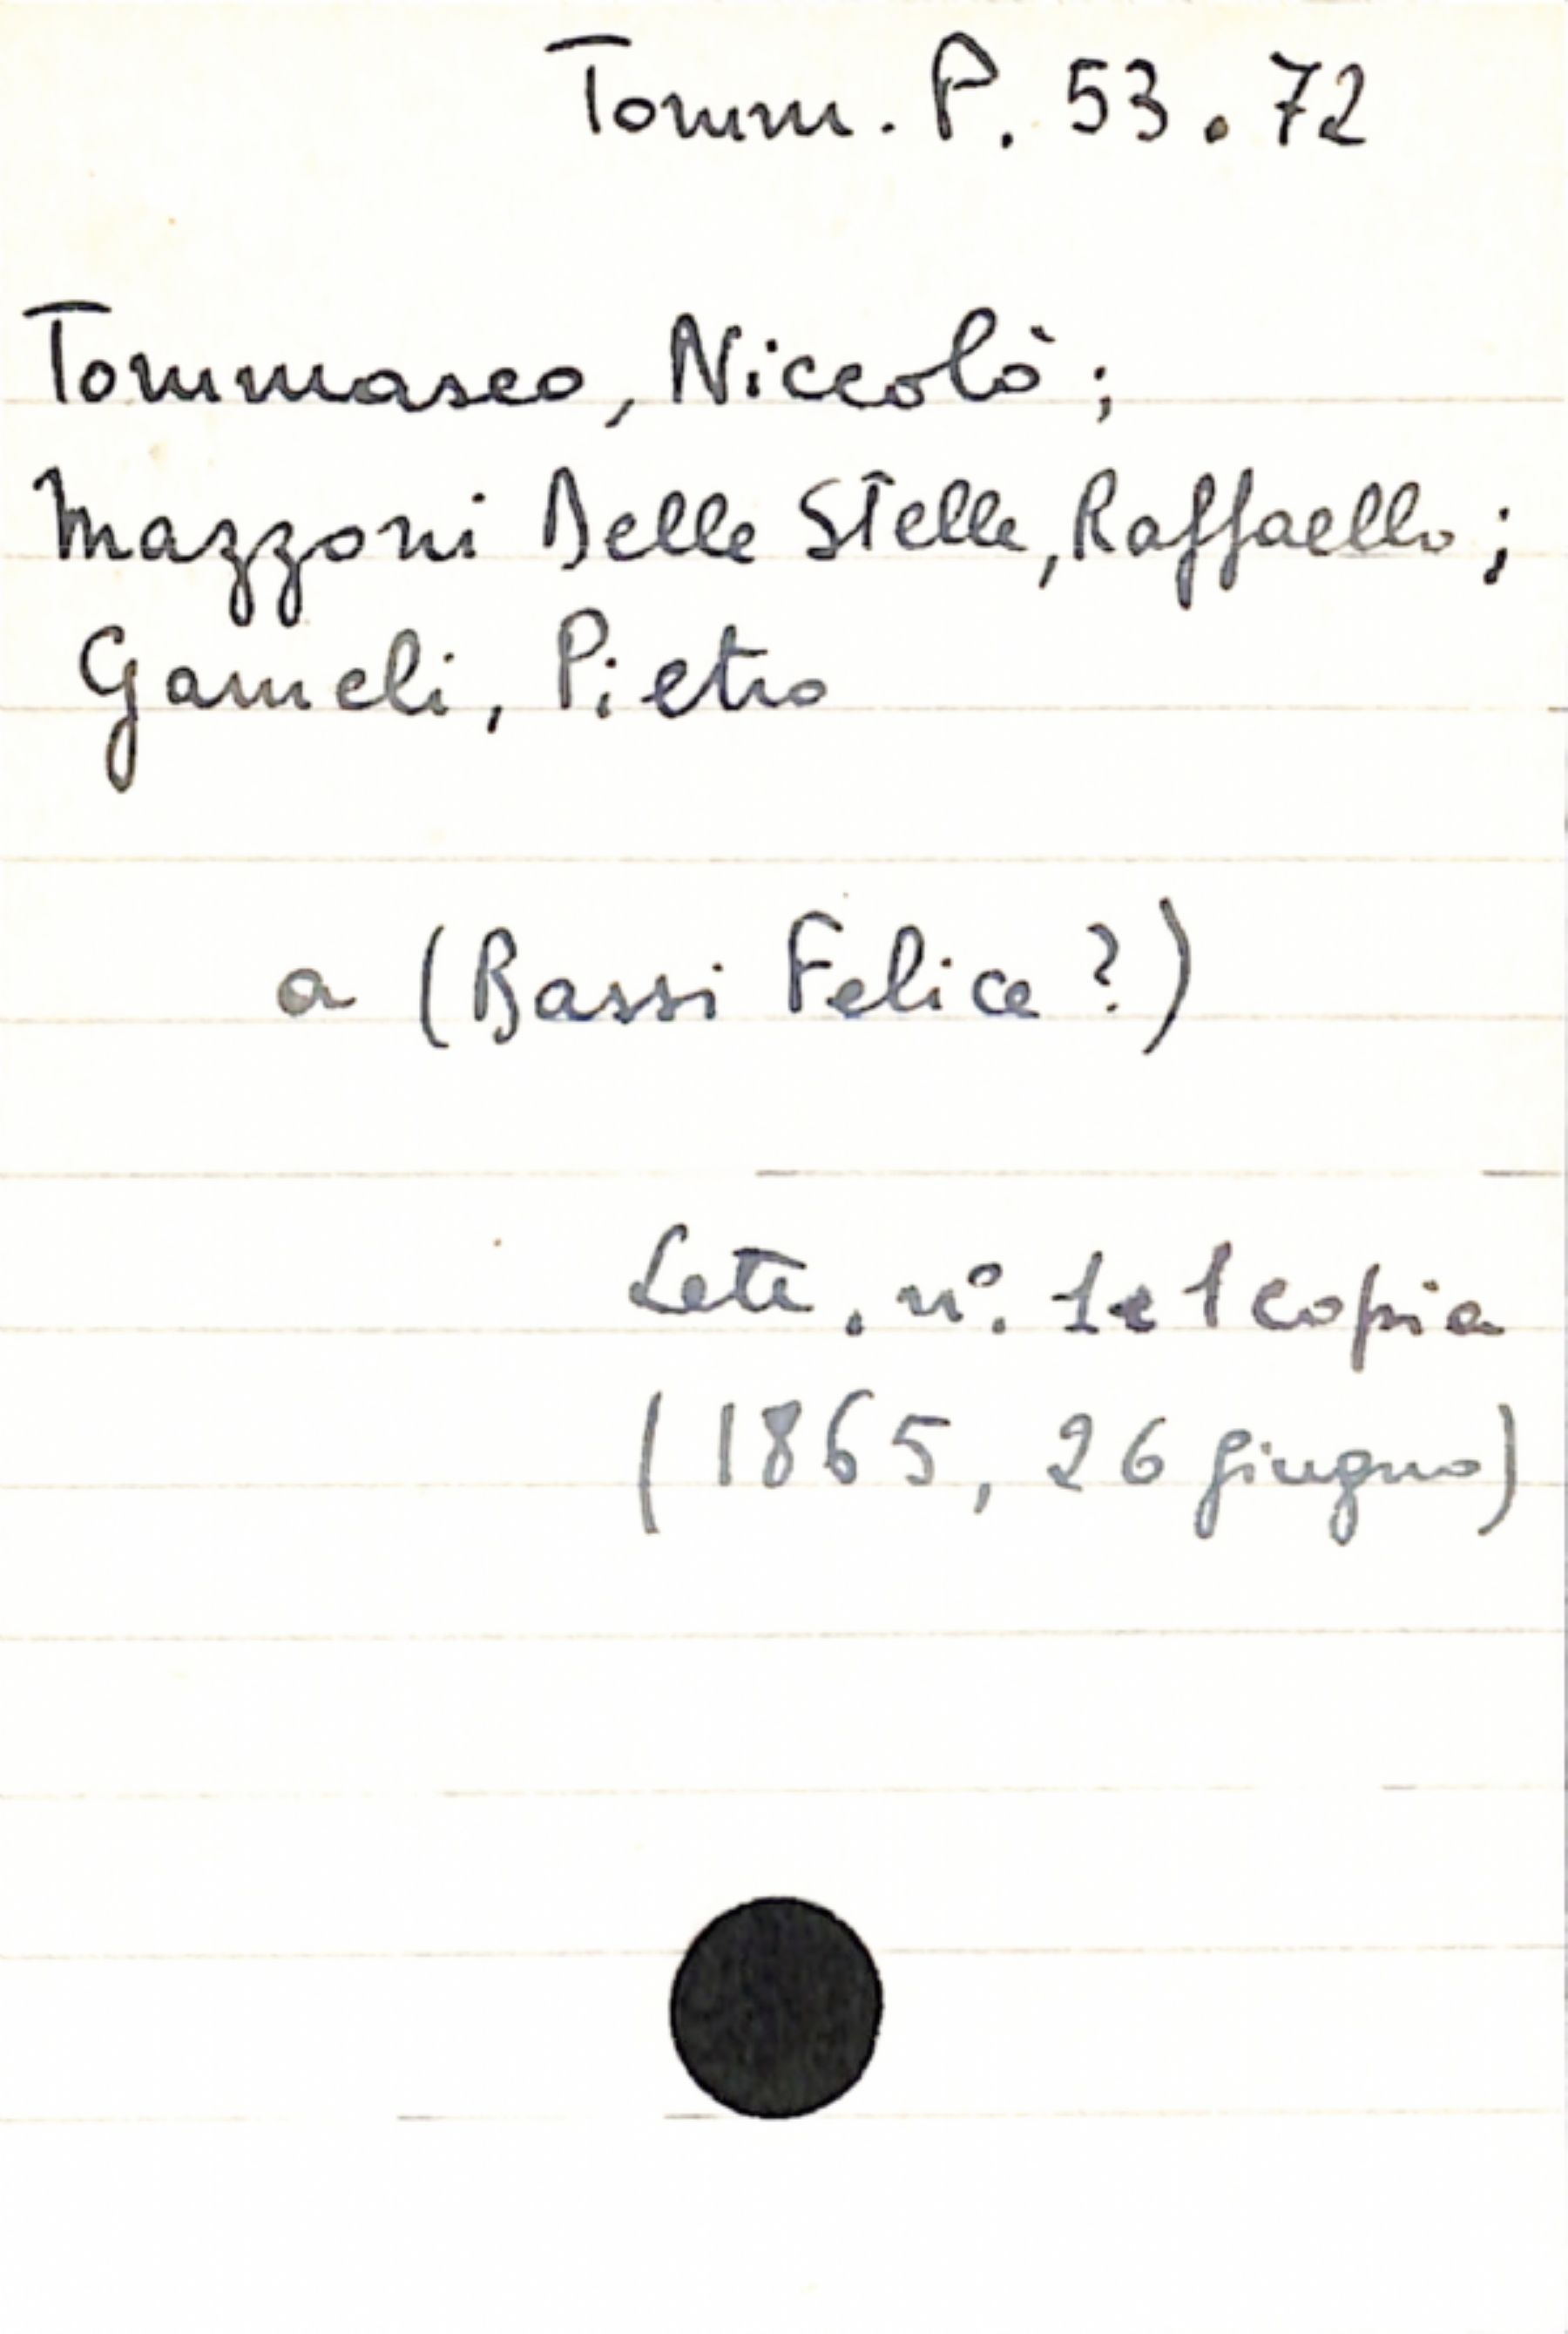 Tomm. P. 53.72
Tommaseo, Niccolò;
Mazzoni Delle Stelle, Raffaello;
Gameli, Pietro
a (Bassi Felice?)
Lett. n°. 1 e 1 copia
(1865, 26 giugno)